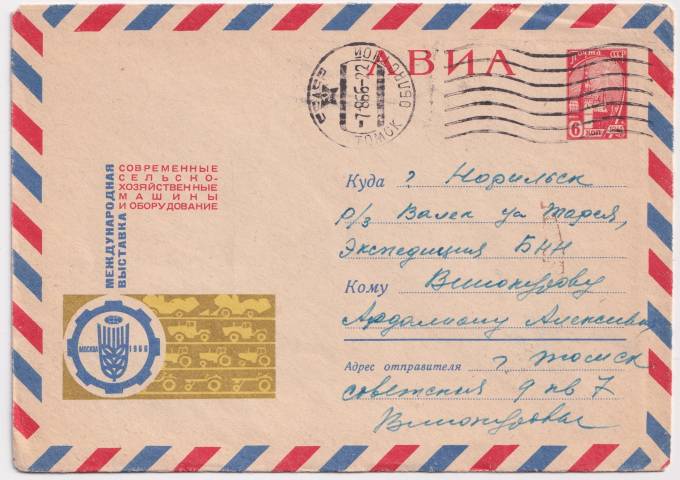 АВИА
ПОЧТА СССР
6 КОП
ТОМСК ОБЛ
-7866-22
МЕЖДУНАРОДНАЯ
ВЫСТАВКА
СОВРЕМЕННЫЕ
СЕЛЬСКО-
ХОЗЯЙСТВЕННЫЕ
МАШИНЫ
И ОБОРУДОВАНИЕ
МОСКВА 1966
Куда г Норильск
р/з Валек ул Тарея,
Экспедиция БНН
Кому Винокурову
Ардалиону Алексеев
Адрес отправителя г Томск
советская 9 кв 7
Винокуровы